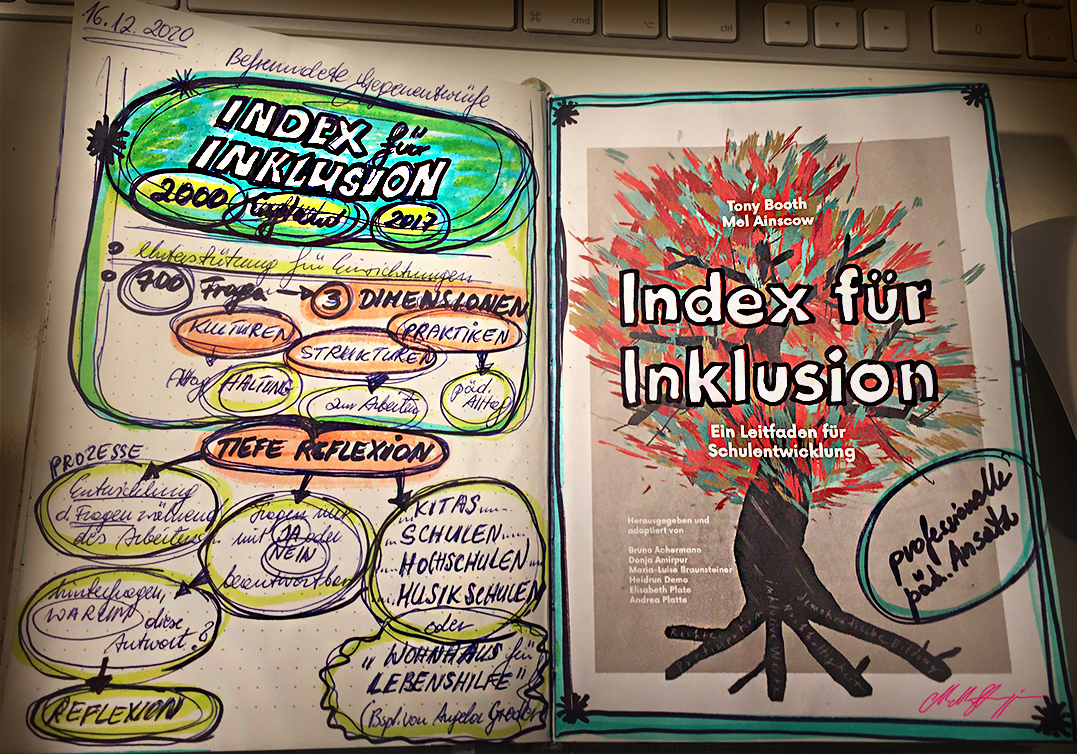 16.12.2020
Befreundete Gegenentwürfe
INDEX für
INKLUSION
2000
2017
Unterstützung für Einrichtungen
700 Fragen → 3 DIMENSIONEN
KULTUREN
STRUKTUREN
PRAKTIKEN
Alltag
HALTUNG
zum Arbeiten
päd.
Alltag
TIEFE REFLEXION
PROZESSE
Entwicklung
d. Fragen während
des Arbeitens
Fragen mit
mit JA oder
NEIN
beantwortbar
KITAS
SCHULEN....
HOCHSCHULEN
MUSIKSCHULEN
oder
"WOHNHAUS für
LEBENSHILFE"
(Bspl. von Angela
hinterfragen,
WARUM diese
Antwort?
REFLEXION
Tony Booth
Mel Ainscow
Index für
Inklusion
Ein Leitfaden für
Schulentwicklung
Herausgegeben und
adaptiert von
Bruno Achermann
Donja Amirpur
Maria-Luise Braunsteiner
Heidrun Demo
Elisabeth Plate
Andrea Platte
demokratische Bildung
professionelle
päd. Ansatz
cmd
ctrl
0